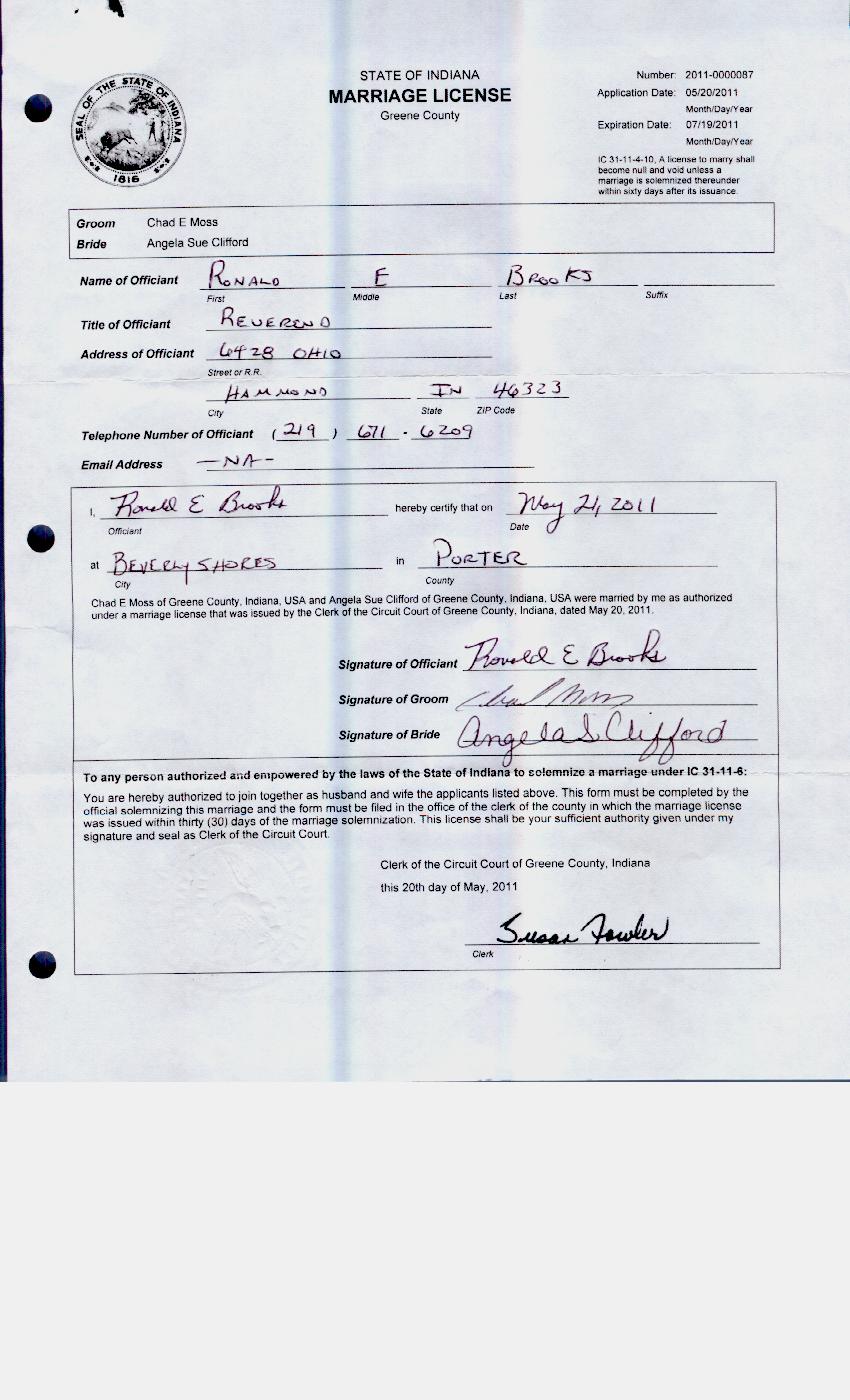 STATE OF INDIANA
MARRIAGE LICENSE
Greene County
SEAL OF THE STATE OF INDIANA
1816
Number: 2011-0000087
Application Date: 05/20/2011
Month/Day/Year
Expiration Date: 07/19/2011
Month/Day/Year
IC 31-11-4-10, A license to marry shall
become null and void unless a
marriage is solemnized thereunder
within sixty days after its issuance.
Groom Chad E Moss
Bride Angela Sue Clifford
Name of Officiant RONALD E BROOKS
First Middle Last Suffix
Title of Officiant REVEREND
Address of Officiant 6428 OHIO
Street or R.R.
HAMMOND IN 46323
City State ZIP Code
Telephone Number of Officiant (219) 671-6209
Email Address -NA-
I, Ronald E Brooks hereby certify that on May 21, 2011
Officiant Date
at BEVERLY SHORES in PORTER
City County
Chad E Moss of Greene County, Indiana, USA and Angela Sue Clifford of Greene County, Indiana, USA were married by me as authorized
under a marriage license that was issued by the Clerk of the Circuit Court of Greene County, Indiana, dated May 20, 2011.
Signature of Officiant Ronald E Brooks
Signature of Groom Chad Moss
Signature of Bride Angela S Clifford
To any person authorized and empowered by the laws of the State of Indiana to solemnize a marriage under IC 31-11-6:
You are hereby authorized to join together as husband and wife the applicants listed above. This form must be completed by the
official solemnizing this marriage and the form must be filed in the office of the clerk of the county in which the marriage license
was issued within thirty (30) days of the marriage solemnization. This license shall be your sufficient authority given under my
signature and seal as Clerk of the Circuit Court.
Clerk of the Circuit Court of Greene County, Indiana
this 20th day of May, 2011
Susan Fowler
Clerk